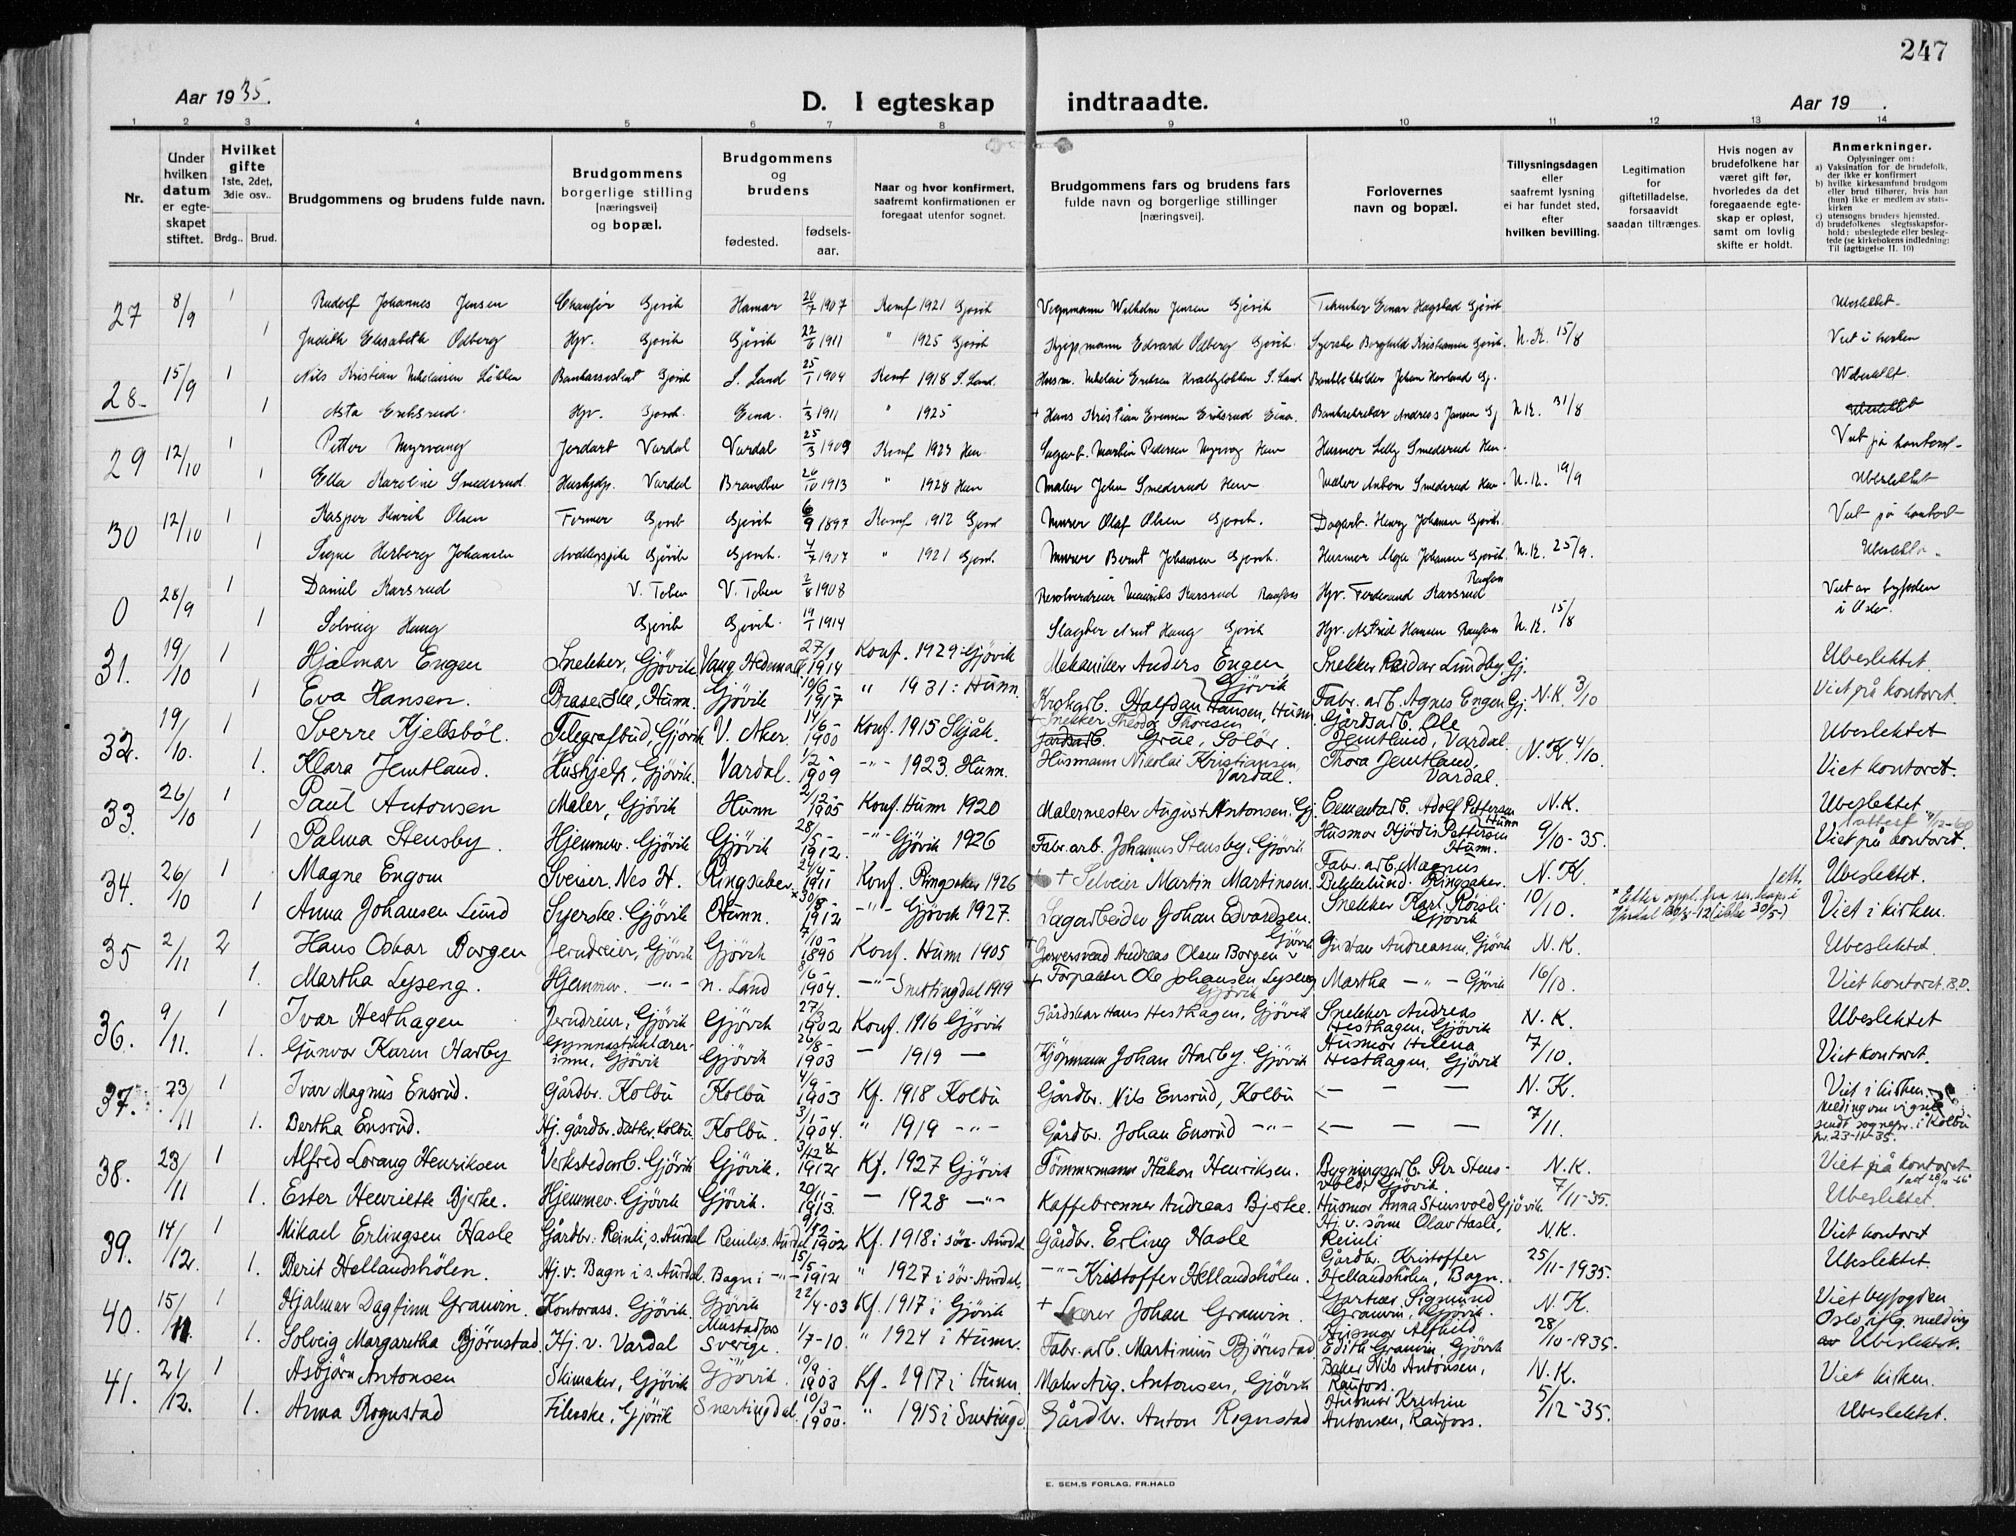 247
Aar 1935.
D. I egteskap indtraadte.
Aar 19 .
1 2 3 4 5 6 7 8 9 10 11 12 13 14
Nr.
Under hvilken datum er egteskapet stiftet.
Hvilket gifte 1ste, 2det, 3die osv..
Brdg.. Brud.
Brudgommens og brudens fulde navn.
Brudgommens borgerlige stilling [næringsvei] og bopæl.
Brudgommens og brudens
fødested.
fødsels-aar.
Naar og hvor konfirmert, saafremt konfirmationen er foregaat utenfor sognet.
Brudgommens fars og brudens fars fulde navn og borgerlige stillinger [næringsvei].
Forlovernes navn og bopæl.
Tillysningsdagen eller saafremt lysning ei har fundet sted, efter hvilken bevilling.
Legitimation for giftetilladelse, forsaavidt saadan tiltrænges.
Hvis nogen av brudefolkene har været gift før, hvorledes da det foregaaende egteskap er opløst, samt om lovlig skifte er holdt.
Anmerkninger.
Oplysninger om:
a) Vaksination for de brudefolk, der ikke er konfirmert
b) hvilke kirkesamfund brudgom eller brud tilhører, hvis han (hun) ikke er medlem av statskirken
c) utensogns bruders hjemsted.
d) brudefolkenes slegtsskapsforhold; ubeslegtede eller beslegtede (se kirkebokens indledning: Til iagttagelse II. 10)
27 8/9 1 Rudolf Johannes Jensen Chaufør Gjøvik Hamar 1907 Konf 1921 Gjøvik Wilhelm Jensen Gjøvik Einar Hagstad Gjøvik Ubeslektet
1 Judith Elisabeth Ødberg Hjv. Gjøvik Gjøvik 22/6 1911 " 1925 Gjøvik Kjøpmann Edvard Ødberg Gjøvik Syerske Borghild Kristiansen Gjøvik N.K. 15/8 Viet i kirken
28 15/9 1 Nils Kristian Nikolaisen Løkken Bankassistent Gjøvik S. Land 25/1 1904 Konf 1918 S. Land Husm. Nikolai Eriksen S. Land Johan Ubeslektet
1 Asta Eriksrud Hjv. Gjøvik Eina 1/3 1911 " 1925 + Hans Kristian Evensen Eriksrud Eina Banksekretær Andreas Jensen Gj N.K. 31/8
29 12/10 1 Petter Myrvang Jordarb Vardal Vardal 25/3 1909 Konf 1923 Hun Sagarb. Martin Pedersen Hun Husmor Lilly Smedsrud Hun Viet på kontoret
1 Ella Karoline Smedsrud Hushjelp. Vardal Brandbu 26/10 1913 " 1928 Hun Maler John Smedsrud Hun Maler Anton Smedsrud Hun N.K. 19/9 Ubeslektet
30 12/10 1 Kasper Henrik Olsen Former Gjøvik Gjøvik 6/9 1897 Konf 1912 Gjøvik Murer Olaf Olsen Gjøvik. Dagarb. Henry Johansen Gjøvik Viet på kontoret
1 Signe Herborg Johansen Gjøvik Gjøvik 4/7 1907 " 1921 Gjøvik Murer Bernt Johansen Gjøvik Husmor Johansen Gjøvik N.K. 25/9. Ubeslektet
0 28/9 1 Daniel Karsrud V. Toten V. Toten 2/8 1908 Revolverdreier Karsrud Raufoss Hjv. Ferdinand Karsrud Raufoss Viet av byfogden i Oslo
1 Solveig Haug Gjøvik Gjøvik 19/1 1914 Slagter Arnt Haug Gjøvik Hjv. Astrid Hansen Raufoss N.K. 15/8
31. 19/10 1 Hjalmar Engen Snekker, Gjøvik Vang Hedmark 1914 Konf. 1929 Gjøvik Mekaniker Anders Engen Gjøvik Snekker Reidar Lundby, Gj. Ubeslektet
1 Eva Hansen. Hunn. Gjøvik 1917 " 1931: Hunn. Halfdan Hansen, Hunn. Fabr. arb. Agnes Engen Gj. N.K. 3/10 Viet på kontoret
32. 19/10. 1 Sverre Kjelsbøl. Telegrafbud, Gjøvik V. Aker. 14/6-1900 Konf. 1915 Skjåk. + Snekker Theodor Thoresen Grue, Solør. Gårdsarb. Ole Jemtland, Vardal Ubeslektet
1. Klara Jemtland. Hushjelp, Gjøvik. Vardal. 1/2-1909 -"- 1923. Hunn. Husmann Nikolai Kristiansen, Vardal. Thora Jemtland, Vardal. N.K. 4/10. Viet kontoret.
33. 26/10 1 Paul Antonsen Maler, Gjøvik Hunn 2/12-1905 Konf. Hunn 1920 Malermester August Antonsen. Gj. Cementarb. Adolf Pettersen Hunn N.K. Ubeslektet
1 Palma Stensby. Hjemmev. Gjøvik Gjøvik 28/5-1912. -"- Gjøvik 1926 Fabr. arb. Johannes Stensby, Gjøvik Husmor Hjørdis Pettersen Hunn. 9/10-35. Viet på kontoret.
34. 26/10 1 Magne Engom Sveiser. Nes H. Ringsaker 24/4-1911 Konf. Ringsaker 1926 + Selveier Martin Martinsen Fabr. arb. Magnus Bekkelund. Ringsaker. N.K. Ubeslektet.
1 Anna Johansen Lund Syerske. Gjøvik Hunn. × 30/8-1912 -"- Gjøvik 1927. Sagarbeider Johan Edvardsen. Gjøvik Snekker Karl Roisli Gjøvik 10/10. × Etter oppl. fra 30/8-12 (ikke 30/5-) Viet i kirken.
35 2/11 2 Hans Oskar Borgen Jerndreier, Gjøvik Gjøvik 7/10-1890 Konf. Hunn 1905 + Garversvend Andreas Olsen Borgen Gustav Andreassen, Gjøvik N.K. Ubeslektet
1. Martha Lyseng. Hjemmev. -"- N. Land 8/6-1904. -"- Snertingdal 1919 + Forpakter Ole Johansen Lyseng Gjøvik Martha -"- Gjøvik 16/10. Viet kontoret. B.D.
36. 9/11. 1 Ivar Hesthagen Jerndreier, Gjøvik Gjøvik 27/3 1902 Konf. 1916 Gjøvik Gårdskar Hans Hesthagen, Gjøvik Snekker Andreas Hesthagen, Gjøvik N.K. Ubeslektet
1. Gunvor Karin Harby Gymnastiklærerinne, Gjøvik Gjøvik 26/8-1903 — 1919 — Kjøpmann Johan Harby. Gjøvik Husmor Helena Hesthagen, Gjøvik 7/10. Viet kontoret.
37. 23/11 1 Ivar Magnus Ensrud. Gårdbr. Kolbu Kolbu 4/9-1903 Kf. 1918 Kolbu Gårdbr. Nils Ensrud, Kolbu — — — N.K. Viet i kirken.
1. Bertha Ensrud. Hj. gårdbr. datter. Kolbu. Kolbu. 3/1-1904. " 1919 -"- Gårdbr. Johan Ensrud -"- — — — 7/11. Melding om vigsel sendt sognepr. i Kolbu nr. 23-11-35.
38. 23/11 1 Alfred Lorang Henriksen Verkstedarb. Gjøvik Gjøvik. 3/12-1912 Kf. 1927 Gjøvik Tømmermann Håkon Henriksen. Bygningsarb. Per Stensvold, Gjøvik N.K. Viet på kontoret
1. Ester Henriette Bjerke. Hjemmev. Gjøvik Gjøvik. 20/11-1913. — 1928 -"- Kaffebrenner Andreas Bjerke. Husmor Anna Stensvold Gjøvik 7/11-35. Ubeslektet.
39. 14/12. 1 Mikael Erlingsen Hasle Gårdbr. Reinli, s. Aurdal Reinli s. Aurdal 1902 Kf. 1918 i sør-Aurdal Gårdbr. Erling Hasle Hj. v. sønn Olav Hasle, Reinli N.K. Viet kontoret
1. Berit Hellandshölen. Hj. v. Bagn i s. Aurdal. Bagn i -"- 15/5-1912 " 1927 i sør-Aurdal. -"- Kristoffer Hellandshölen. Gårdbr. Kristoffer Hellandshölen, Bagn. 25/11-1935. Ubeslektet.
40. 15/11. 1 Hjalmar Dagfinn Granvin. Kontorass. Gjøvik Gjøvik 22/4-03 Kf. 1917 i Gjøvik + Lærer Johan Granvin. Gartner Sigmund Granvin, Gjøvik. N.K. Viet byfogden
1. Solveig Margaretha Bjørnstad. Hj. v. Vardal Mustadfos Sverige. 1/7-10. " 1924 i Hunn. Fabr. arb. Martinius Bjørnstad Husmor Alfhild Edith Granvin, Gjøvik 28/10-1935. Oslo iflg. melding av Ubeslektet.
41. 21/12. 1 Asbjørn Antonsen Skimaker, Gjøvik Gjövik. 10/9 1903 Kf. 1917 i Hunn. Maler Aug. Antonsen, Gjøvik Baker Nils Antonsen, Raufoss. N.K. Viet kirken.
1. Anna Rognstad Gjøvik Snertingdal. 10/3-1900. " 1915 i Snertingd. Gårdbr. Anton Rognstad Husmor Kristine Antonsen, Raufoss. 5/12-35. Ubeslektet.
E. SEM.S FORLAG, FR.HALD